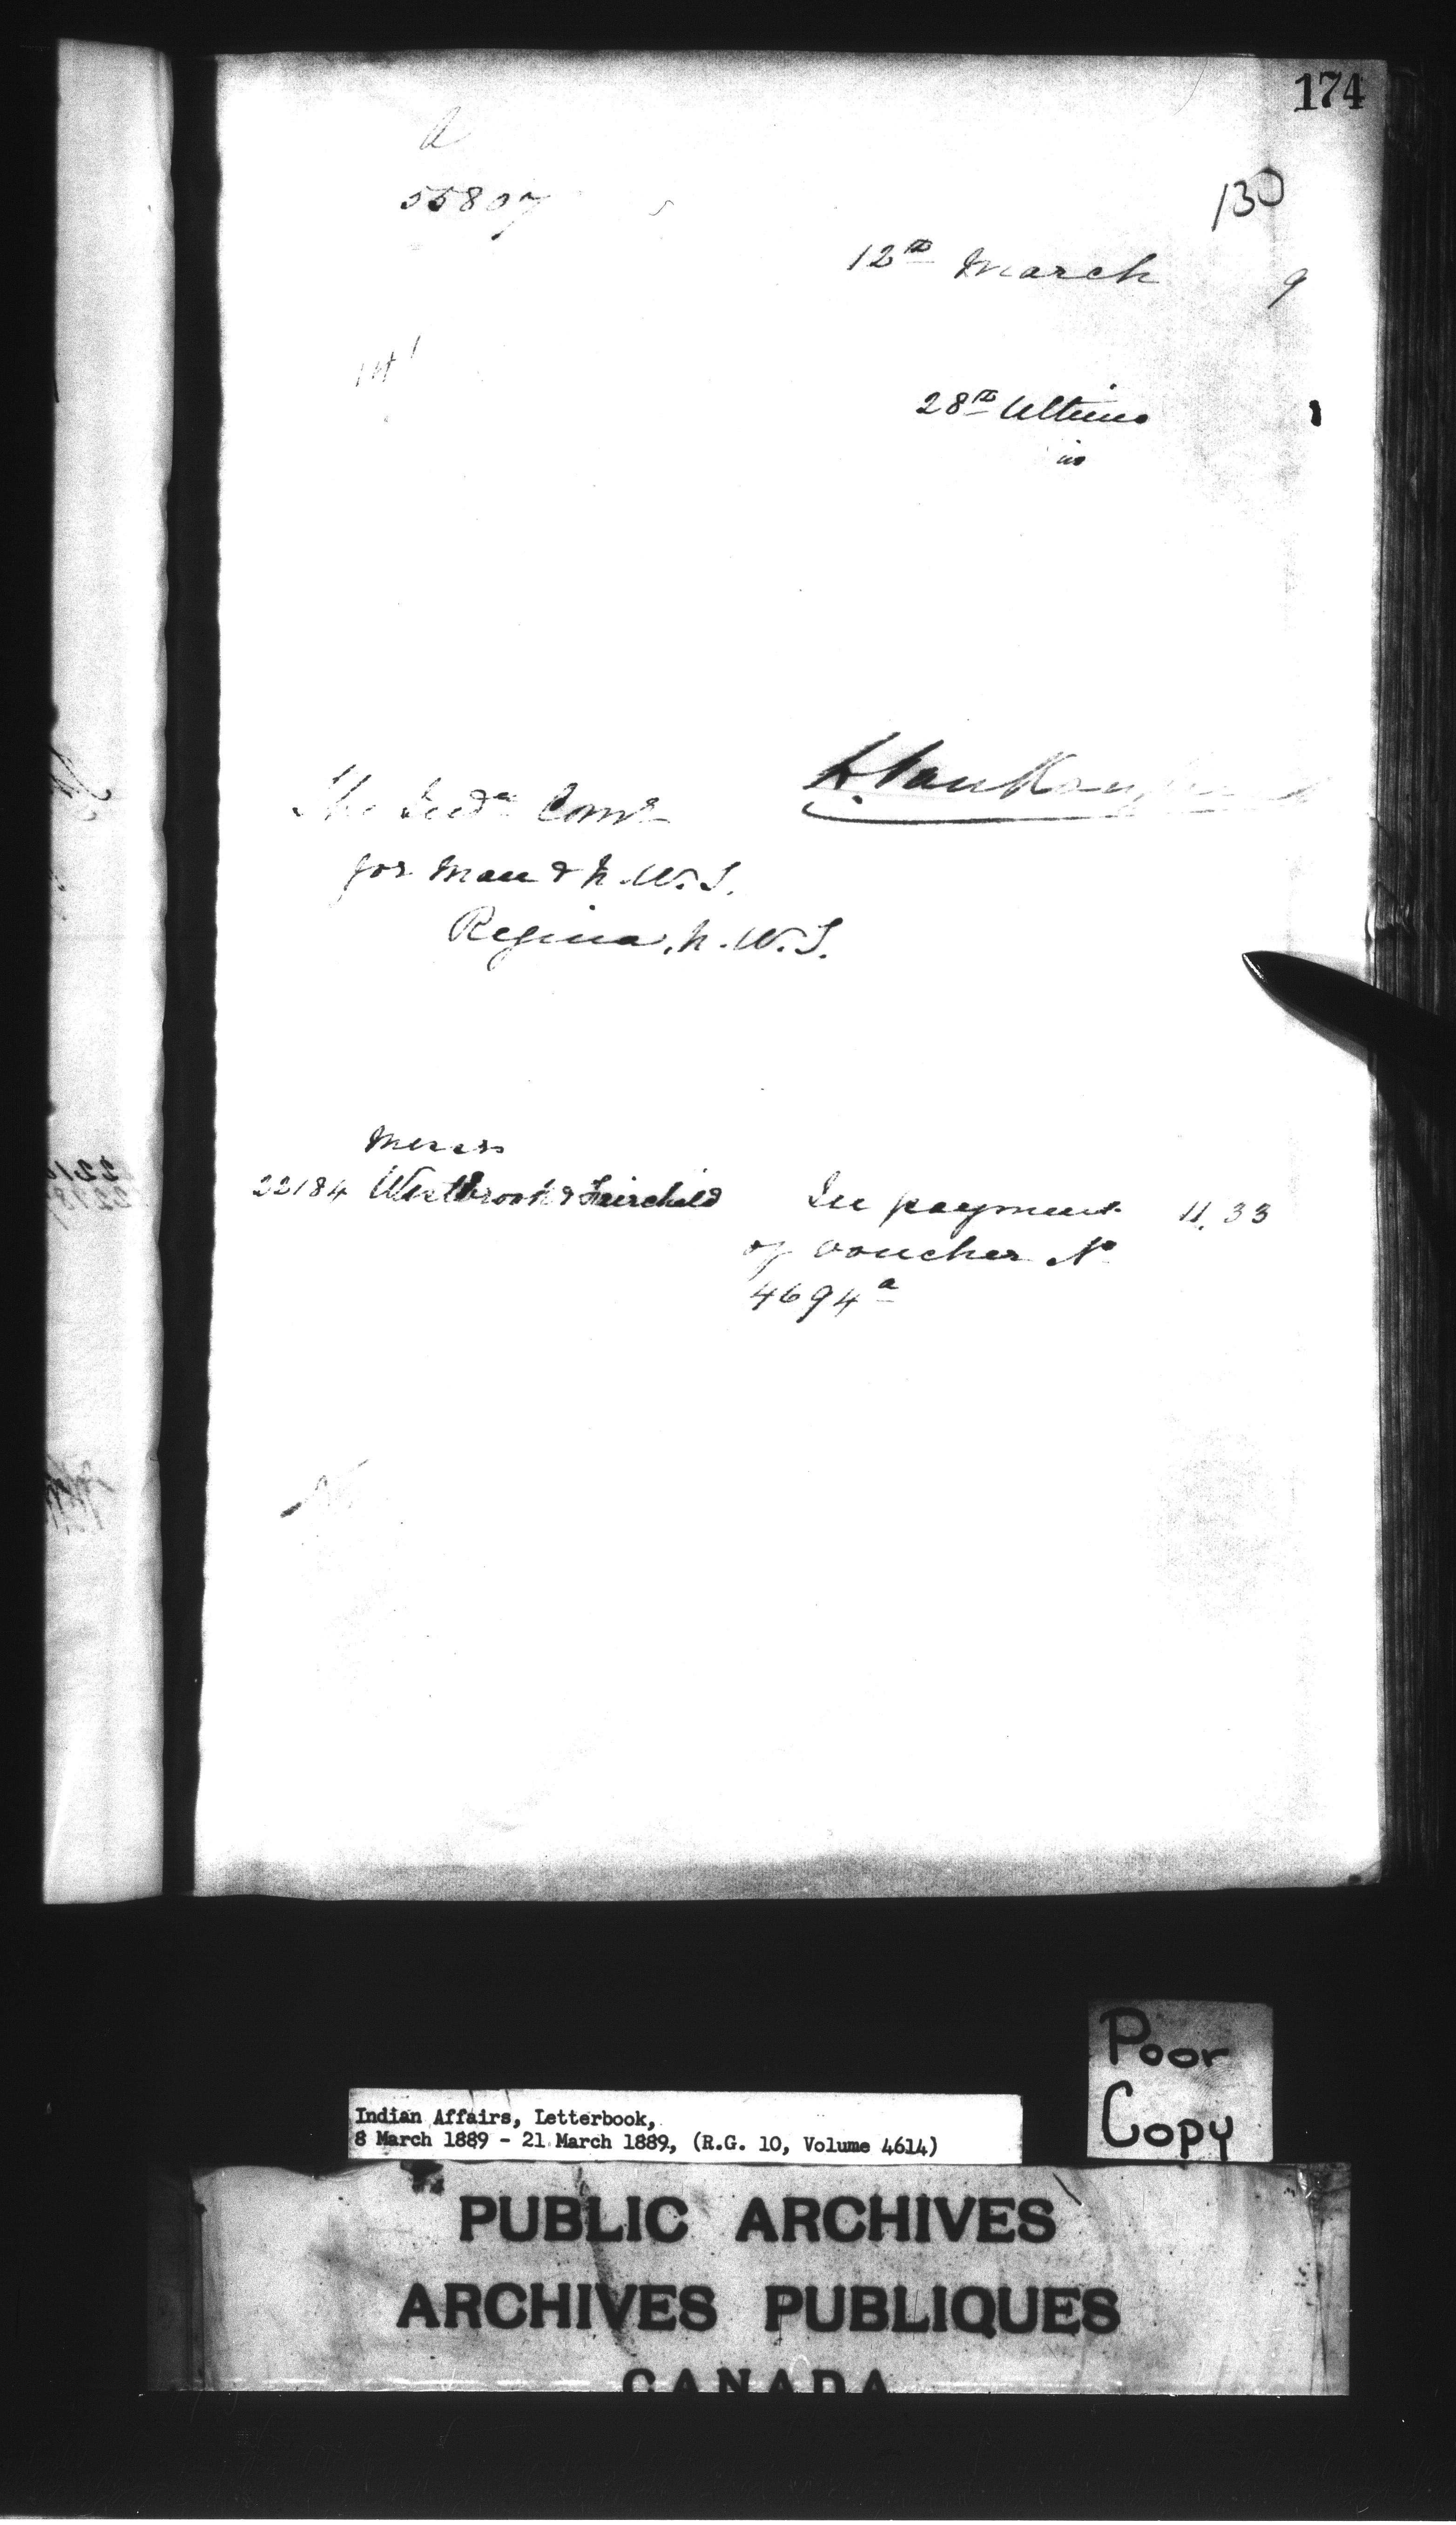 174
130
55807
12th March 9
28th Ultimo
is
L. Vankoughnet
The Indn Comr
for Man & N.W.T.
Regina, N.W.T.
Messrs
22184 Westbrook & Fairchild In payment 11.33
of voucher No
4694a
Poor
Copy
Indian Affairs, Letterbook,
8 March 1889 - 21 March 1889, (R.G. 10, Volume 4614)
PUBLIC ARCHIVES
ARCHIVES PUBLIQUES
CANADA